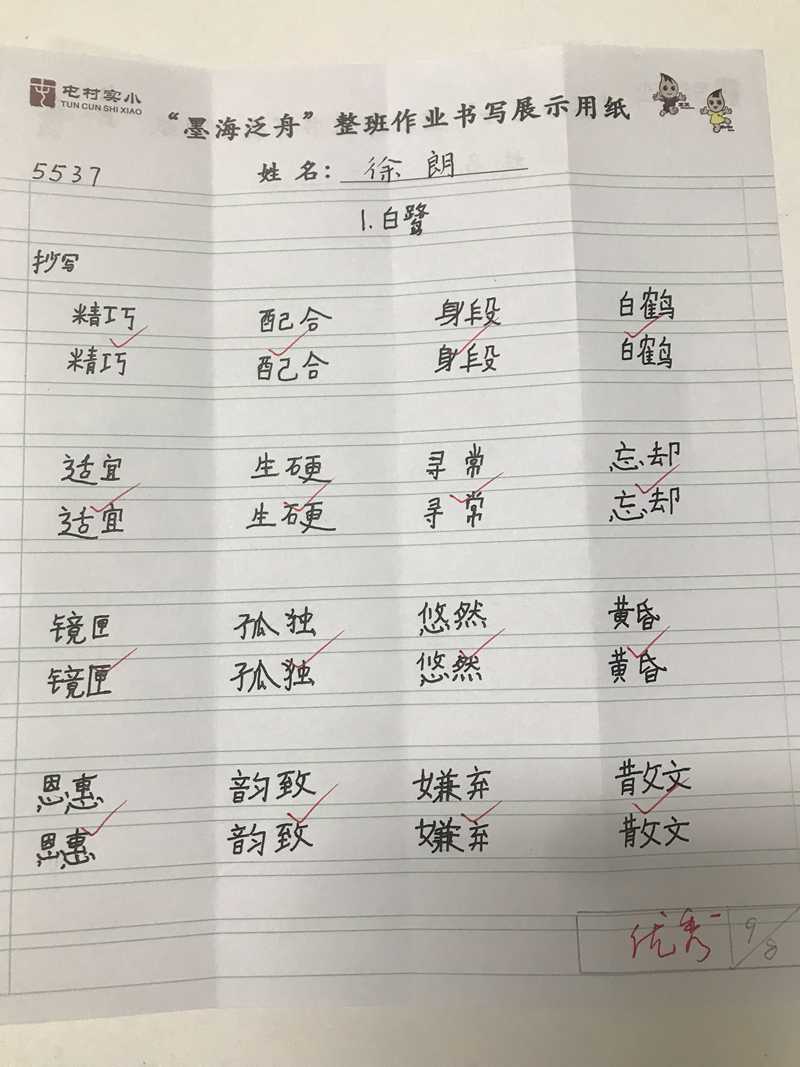 屯村实小
TUN CUN SHI XIAO
“墨海泛舟”整班作业书写展示用纸
5537 姓 名：徐朗
1.白鹭
抄写
精巧 配合 身段 白鹤
精巧 配合 身段 白鹤
适宜 生硬 寻常 忘却
适宜 生硬 寻常 忘却
镜匣 孤独 悠然 黄昏
镜匣 孤独 悠然 黄昏
恩惠 韵致 嫌弃 散文
恩惠 韵致 嫌弃 散文
优秀 9/8